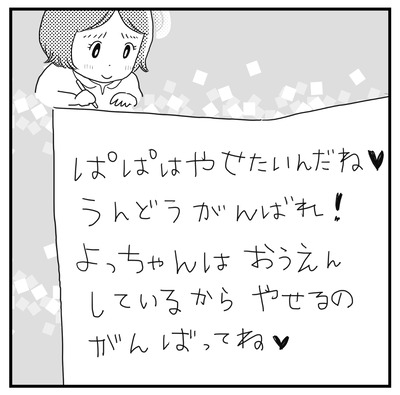 ぱぱはやせたいんだね♥
うんどうがんばれ!
よっちゃんは おうえん
しているから やせるの
がんばってね♥